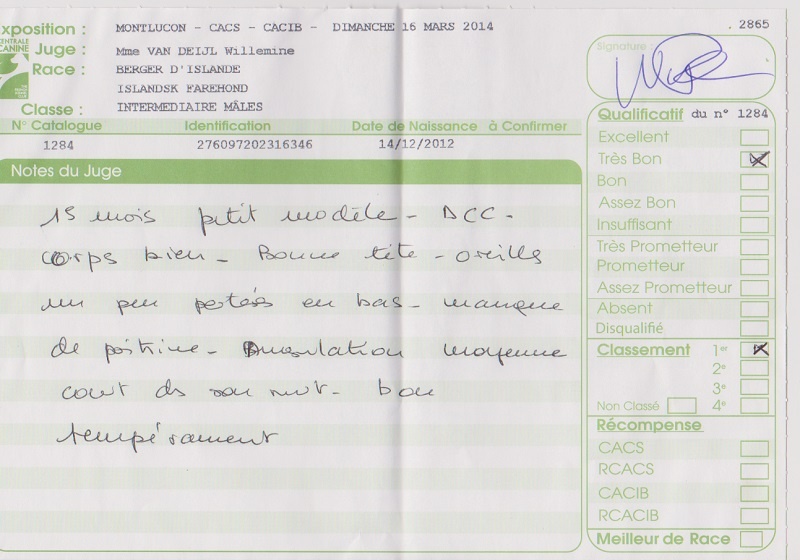 xposition : MONTLUCON - CACS - CACIB - DIMANCHE 16 MARS 2014
. 2865
CENTRALE
CANINE
Juge : Mme VAN DEIJL Willemine
Race : BERGER D'ISLANDE
ISLANDSK FAREHOND
Classe : INTERMEDIAIRE MÂLES
N° Catalogue Identification Date de Naissance à Confirmer
1284 276097202316346 14/12/2012
Notes du Juge
15 mois petit modèle - DCC -
corps bien - Bonne tête - oreills
un peu portées en bas - manque
de poitrine - angulation moyenne
court ds son mvt - bon
tempérament
Signature :
Qualificatif du n° 1284
Excellent
Très Bon
Bon
Assez Bon
Insuffisant
Très Prometteur
Prometteur
Assez Prometteur
Absent
Disqualifié
Classement 1er
2e
3e
Non Classé 4e
Récompense
CACS
RCACS
CACIB
RCACIB
Meilleur de Race